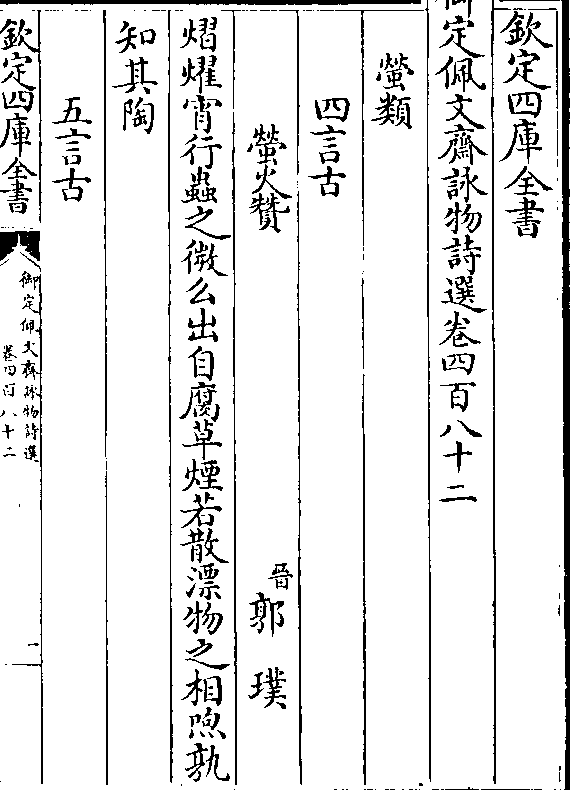 欽定四庫全書
御定佩文齋詠物詩選卷四百八十二
螢類
四言古
螢火贊　晉郭璞
熠燿宵行蟲之微么出自腐草煙若散漂物之相煦孰
知其陶
五言古
欽定四庫全書
御定佩文齋詠物詩選
卷四百八十二
一